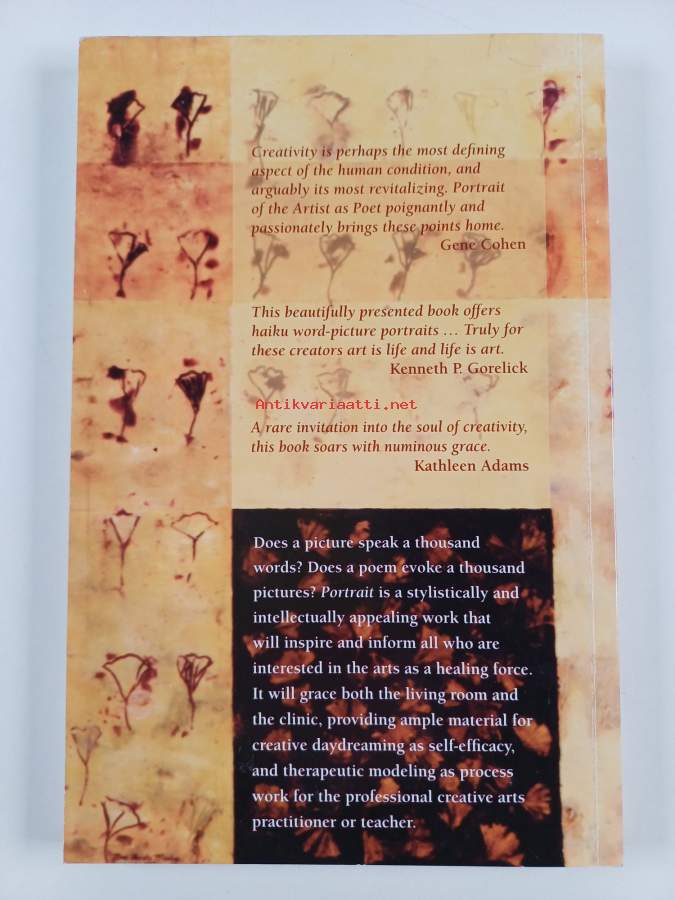 Creativity is perhaps the most defining
aspect of the human condition, and
arguably its most revitalizing. Portrait
of the Artist as Poet poignantly and
passionately brings these points home.
Gene Cohen
This beautifully presented book offers
haiku word-picture portraits … Truly for
these creators art is life and life is art.
Kenneth P. Gorelick
Antikvariaatti.net
A rare invitation into the soul of creativity,
this book soars with numinous grace.
Kathleen Adams
Does a picture speak a thousand
words? Does a poem evoke a thousand
pictures? Portrait is a stylistically and
intellectually appealing work that
will inspire and inform all who are
interested in the arts as a healing force.
It will grace both the living room and
the clinic, providing ample material for
creative daydreaming as self-efficacy,
and therapeutic modeling as process
work for the professional creative arts
practitioner or teacher.